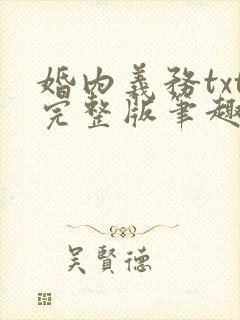 婚内義務txt
完整版筆趣
吳賢德